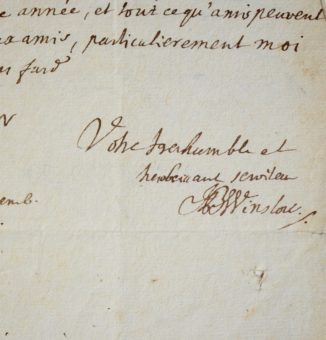 e année, et tout ce qu'amis peuvent
x amis, particulierement moi
Votre treshumble et
tresobeissant serviteu
Winslow
emb.